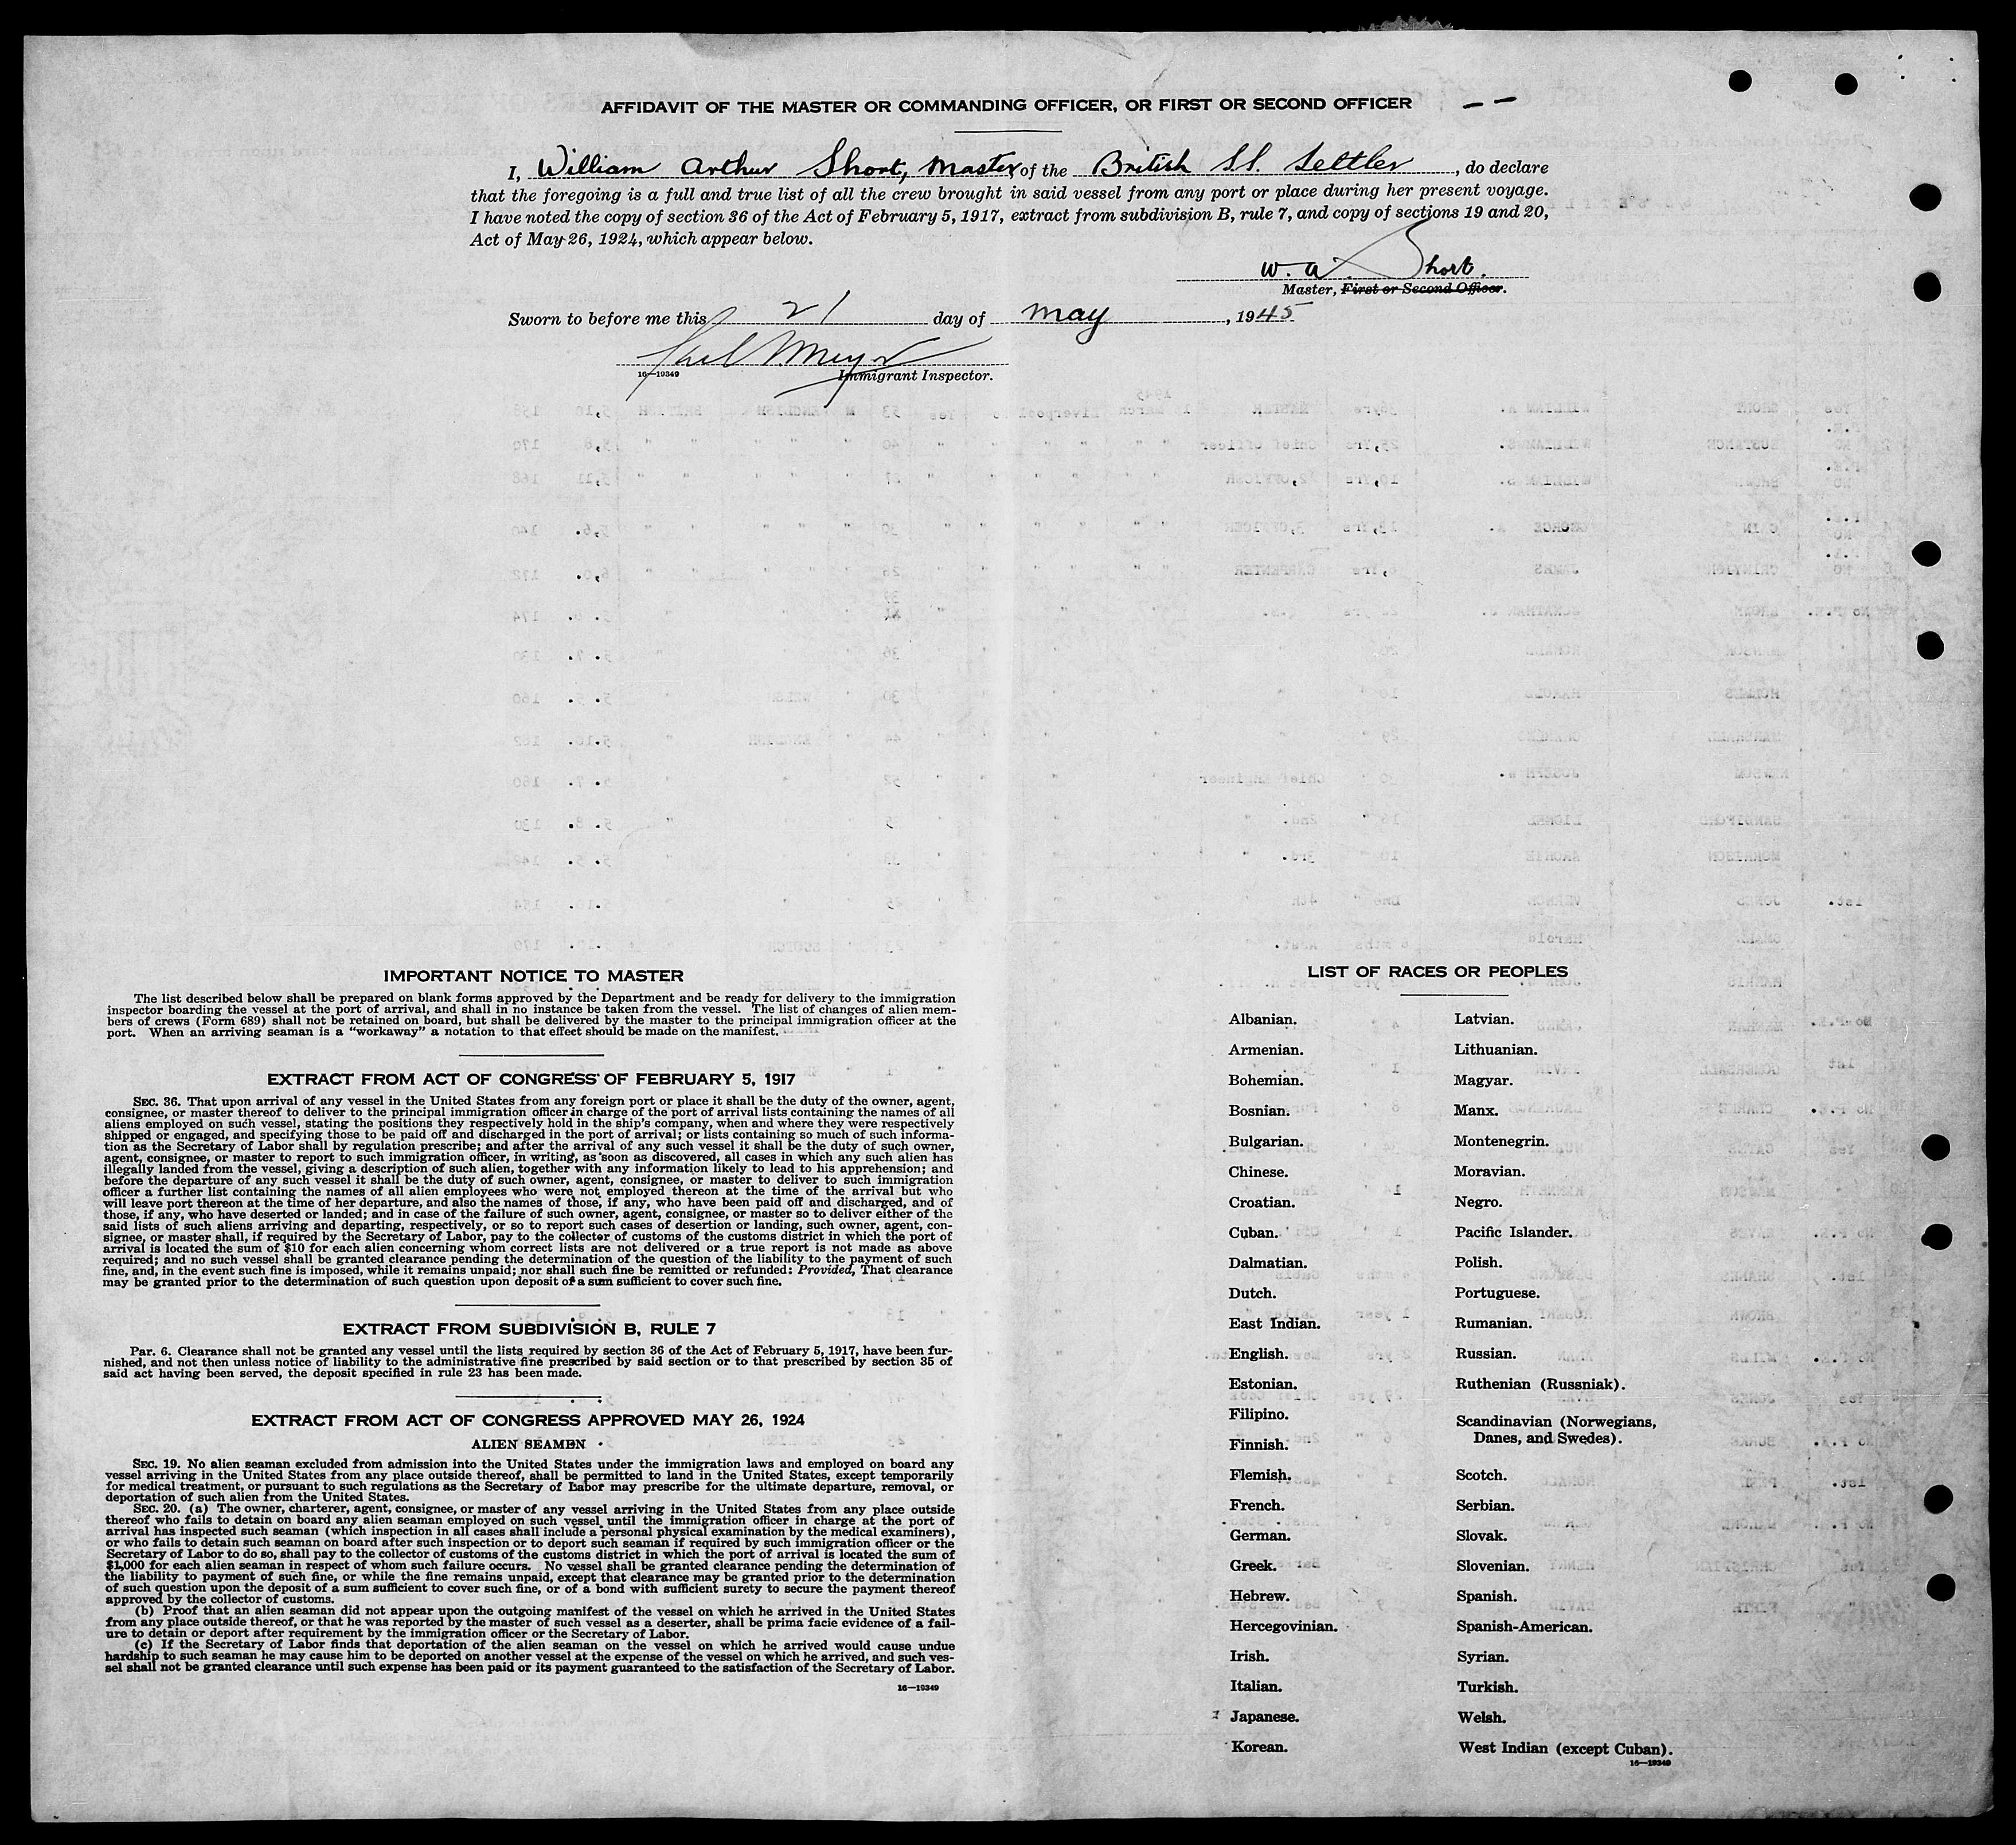 AFFIDAVIT OF THE MASTER OR COMMANDING OFFICER, OR FIRST OR SECOND OFFICER
I, William Arthur Short, Master of the British SS. Settler, do declare
that the foregoing is a full and true list of all the crew brought in said vessel from any port or place during her present voyage.
I have noted the copy of section 36 of the Act of February 5, 1917, extract from subdivision B, rule 7, and copy of sections 19 and 20,
Act of May 26, 1924, which appear below.
W. A. Short.
Master, First or Second Officer.
Sworn to before me this 21 day of May, 1945
16—19349
Immigrant Inspector.
IMPORTANT NOTICE TO MASTER
The list described below shall be prepared on blank forms approved by the Department and be ready for delivery to the immigration
inspector boarding the vessel at the port of arrival, and shall in no instance be taken from the vessel. The list of changes of alien mem-
bers of crews (Form 689) shall not be retained on board, but shall be delivered by the master to the principal immigration officer at the
port. When an arriving seaman is a “workaway” a notation to that effect should be made on the manifest.
EXTRACT FROM ACT OF CONGRESS OF FEBRUARY 5, 1917
SEC. 36. That upon arrival of any vessel in the United States from any foreign port or place it shall be the duty of the owner, agent,
consignee, or master thereof to deliver to the principal immigration officer in charge of the port of arrival lists containing the names of all
aliens employed on such vessel, stating the positions they respectively hold in the ship's company, when and where they were respectively
shipped or engaged, and specifying those to be paid off and discharged in the port of arrival; or lists containing so much of such informa-
tion as the Secretary of Labor shall by regulation prescribe; and after the arrival of any such vessel it shall be the duty of such owner,
agent, consignee, or master to report to such immigration officer, in writing, as soon as discovered, all cases in which any such alien has
illegally landed from the vessel, giving a description of such alien, together with any information likely to lead to his apprehension; and
before the departure of any such vessel it shall be the duty of such owner, agent, consignee, or master to deliver to such immigration
officer a further list containing the names of all alien employees who were not employed thereon at the time of the arrival but who
will leave port thereon at the time of her departure, and also the names of those, if any, who have been paid off and discharged, and of
those, if any, who have deserted or landed; and in case of the failure of such owner, agent, consignee, or master so to deliver either of the
said lists of such aliens arriving and departing, respectively, or so to report such cases of desertion or landing, such owner, agent, con-
signee, or master shall, if required by the Secretary of Labor, pay to the collector of customs of the customs district in which the port of
arrival is located the sum of $10 for each alien concerning whom correct lists are not delivered or a true report is not made as above
required; and no such vessel shall be granted clearance pending the determination of the question of the liability to the payment of such
fine, and, in the event such fine is imposed, while it remains unpaid; nor shall such fine be remitted or refunded: Provided, That clearance
may be granted prior to the determination of such question upon deposit of a sum sufficient to cover such fine.
EXTRACT FROM SUBDIVISION B, RULE 7
Par. 6. Clearance shall not be granted any vessel until the lists required by section 36 of the Act of February 5, 1917, have been fur-
nished, and not then unless notice of liability to the administrative fine prescribed by said section or to that prescribed by section 35 of
said act having been served, the deposit specified in rule 23 has been made.
EXTRACT FROM ACT OF CONGRESS APPROVED MAY 26, 1924
ALIEN SEAMEN
SEC. 19. No alien seaman excluded from admission into the United States under the immigration laws and employed on board any
vessel arriving in the United States from any place outside thereof, shall be permitted to land in the United States, except temporarily
for medical treatment, or pursuant to such regulations as the Secretary of Labor may prescribe for the ultimate departure, removal, or
deportation of such alien from the United States.
SEC. 20. (a) The owner, charterer, agent, consignee, or master of any vessel arriving in the United States from any place outside
thereof who fails to detain on board any alien seaman employed on such vessel until the immigration officer in charge at the port of
arrival has inspected such seaman (which inspection in all cases shall include a personal physical examination by the medical examiners),
or who fails to detain such seaman on board after such inspection or to deport such seaman if required by such immigration officer or the
Secretary of Labor to do so, shall pay to the collector of customs of the customs district in which the port of arrival is located the sum of
$1,000 for each alien seaman in respect of whom such failure occurs. No vessel shall be granted clearance pending the determination of
the liability to payment of such fine, or while the fine remains unpaid, except that clearance may be granted prior to the determination
of such question upon the deposit of a sum sufficient to cover such fine, or of a bond with sufficient surety to secure the payment thereof
approved by the collector of customs.
(b) Proof that an alien seaman did not appear upon the outgoing manifest of the vessel on which he arrived in the United States
from any place outside thereof, or that he was reported by the master of such vessel as a deserter, shall be prima facie evidence of a fail-
ure to detain or deport after requirement by the immigration officer or the Secretary of Labor.
(c) If the Secretary of Labor finds that deportation of the alien seaman on the vessel on which he arrived would cause undue
hardship to such seaman he may cause him to be deported on another vessel at the expense of the vessel on which he arrived, and such ves-
sel shall not be granted clearance until such expense has been paid or its payment guaranteed to the satisfaction of the Secretary of Labor.
16—19349
LIST OF RACES OR PEOPLES
Albanian.
Armenian.
Bohemian.
Bosnian.
Bulgarian.
Chinese.
Croatian.
Cuban.
Dalmatian.
Dutch.
East Indian.
English.
Estonian.
Filipino.
Finnish.
Flemish.
French.
German.
Greek.
Hebrew.
Hercegovinian.
Irish.
Italian.
Japanese.
Korean.
Latvian.
Lithuanian.
Magyar.
Manx.
Montenegrin.
Moravian.
Negro.
Pacific Islander.
Polish.
Portuguese.
Rumanian.
Russian.
Ruthenian (Russniak).
Scandinavian (Norwegians,
Danes, and Swedes).
Scotch.
Serbian.
Slovak.
Slovenian.
Spanish.
Spanish-American.
Syrian.
Turkish.
Welsh.
West Indian (except Cuban).
16—19349